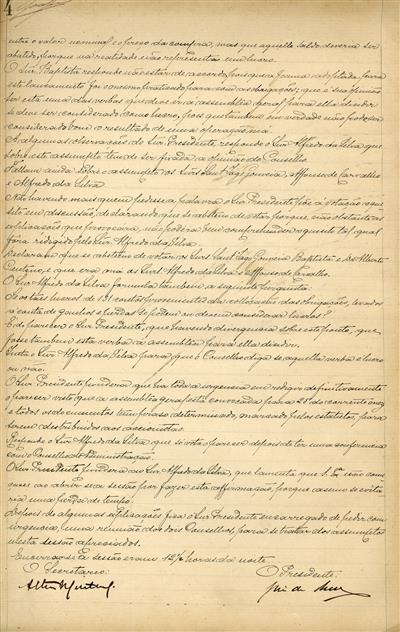 4
entre o valor nominal e o preço da compra, mas que aquelle saldo deveria ser
abatido, porque na realidade não representa um lucro.
O Snr. Baptista responde não estar de acordo, pois que a forma adoptada para
este lançamento foi o mesmo praticado para com as obrigações; que a sua opinião
por esta uma das verbas que deve ir a assembleia geral para ella decidir
se deve ser considerado como lucro, pois que tambem em verdade não pode ser
considerado como o resultado de uma operação má.
A algumas observações do Snr. Presidente, responde o Snr. Alfredo da Silva que
sobre este assumpto tem de ser firmada a opinião do Conselho.
Fallam ainda sobre o assumpto os Snrs. Sant'Iago Gouveia, Affonso de Carvalho
e Alfredo da Silva.
Não havendo mais quem pedisse a palavra o Snr. Presidente põe á votação o que
sito em discussão, declarando que se abstem de votar porque, não obstante as
explicações que provocára, não poderá bem comprehender o quesito tal qual
fôra redigido pelo Snr. Alfredo da Silva.
Declaram que se abstem de votar os Snrs. Sant'Iago Gouveia, Baptista e
e que era má os Snrs. Alfredo da Silva e Affonso de Carvalho.
O Snr. Alfredo da Silva formula tambem a seguinte pergunta:
Se os taes lucros de 131 contos provenientes da collocação das obrigações, levados
á conta de ganhos e perdas se podem ou devem considerar lucros?
É de parecer o Snr. Presidente, que havendo divergencia sobre este ponto, que
fosse tambem esta verba á assembleia para ella decidir.
Insta o Snr. Alfredo da Silva para que o Conselho diga se aquella verba é lucro
ou não.
O Snr. Presidente pondera que ha toda a urgencia em redigir definitivamente
o parecer visto que a assembleia geral está convocada para 28 do corrente mez
e todos os documentos tem prazo determinado, marcado pelos estatutos, para
serem destribuidos aos accionistas.
Responde o Snr. Alfredo da Silva que só vota o parecer depois de ter uma conferencia
com o Conselho d'Administração.
O Snr. Presidente pondera ao Snr. Alfredo da Silva, que lamenta que S. Exa. não come-
çasse ao abrir-se a sessão por fazer esta affirmação, porque assim se evita-
ria uma perda de tempo.
Depois de algumas explicações fica o Snr. Presidente encarregado de pedir com
urgencia, uma reunião dos dois Conselhos, para se tratar dos assumptos
nesta sessão apreciados.
Encerrou-se a sessão eram 12 1/2 horas da noite.
O Secretario O Presidente